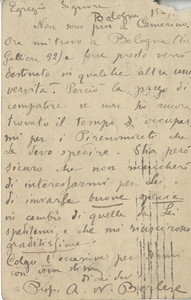 Egregio Signore
Bologna
Non sono più a Camerino.
Ora mi trovo a Bologna (Via
Galliera 92) e forse presto verrò
destinato in qualche altra uni
versità. Perciò la prego di
compatire se non ho ancora
trovato il tempo di occupar
mi per i Pirenomiceti che
Le devo spedire. Stia però
sicuro che non mancherò
di interessarmi per Lei e
di inviarle buone specie
in cambio di quelle da Lei
speditemi, e che mi riuscirono
graditissime.
Colgo l'occasione per
con vera stima
Prof. A. N. Berlese